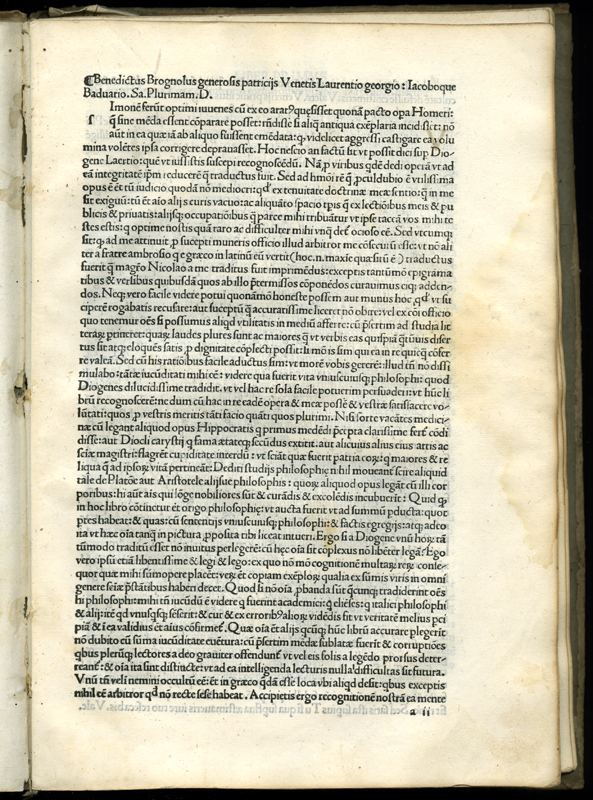 Benedictus Brognolus generosis patricijs Venetis Laurentio georgio: Iacoboque
Baduario. Sa. Plurimam. D.
Imonē ferūt optimi iuuenes cū ex eo aratꝰ quęsisset quonā pacto opa Homeri:
s
q̄ sine mēda essent cōparare posset: rn̄disse si aliq̄ antiqua exēplaria incidisset: nō
aūt in ea quæ iā ab aliquo fuissent emēdata: q̨ videlicet aggressi castigare ea volu
mina volētes ipsa corrigere deprauasset. Hoc nescio an factū sit vt possit dici sup Dio-
gene Laertio: quē vt iussistis suscepi recognoscēdū. Nā p viribus qdē dedi operā vt ad
eā integritatē ipm̄ reducerē q̄ traductus fuit. Sed ad hmōi rē q̄ pculdubio ē vtilissima
opus ē et tū iudicio quodā nō mediocri: qd̄ ex tenuitate doctrinæ meæ sentio: q̄ in me
sit exiguū: tū ēt aīo alijs curis vacuo: ac aliquāto spacio tpis q̄ ex lectiōibus meis & pu
blicis & priuatis: alijsq; occupatiōibus q̄ parce mihi tribuātur vt ipse taceā vos mihi te
stes estis: q̄ optime nostis quā raro ac difficulter mihi vnq̄ det̄ ocioso eē. Sed vtcumq;
sit: q̨ ad me attinuit p suscepti muneris officio illud arbitror me cōsecutū esse: vt nō ali
ter a fratre ambrosio q e græco in latinū eū vertit (hoc. n. maxie quæsitū ē) traductus
fuerit q̄ magr̄o Nicolao a me traditus fuit imprimēdus: exceptis tantūmō epigrāma
tibus & versibus quibusdā quos ab illo p̄termissos cōponēdos curauimus eiq; adden-
dos. Neq; vero facile videre potui quonāmō honeste possem aut munus hoc qd̄ vt su
ciperē rogabatis recusare: aut susceptū q̄ accuratissime liceret nō obire: vel ex cōi officio
quo tenemur oēs si possumus aliqd vtilitatis in mediū afferre: cū p̄sertim ad studia lit
terarꝝ pertineret: quarꝝ laudes plures sunt ac maiores q̄ vt verbis eas quispiā q̄tūuis diser
tus sit atq; eloquēs satis p dignitate cōplecti possit: Ii mōis sim qui ea in re quicq̄ cōfer
re valeā. Sed cū his ratiōibus facile aductus sim: vt morē vobis gererē: illud tn̄ nō dissi
mulabo: tātæ iucūditati mihi eē: videre qua fuerit vita vniuscuiusq; philosophi: quod
Diogenes dilucidissime tradidit. vt vel hac re sola facile potuerim persuaderi: vt hūc li
brū recognoscerē: ne dum cū hac in re eadē opera & meæ possē & vestræ satisfacere vo-
lūtati: quos p vestris meritis tāti facio quāti quos plurimi. Nisi forte vacātes medici-
næ cū legant aliquod opus Hippocratis q primus medēdi p̄cepta clarissime fert̄ cōdi
disse: aut Dioclı caryſtij q fama ætateq; secūdus extitit. aut alicuius alius eius artis ac
sciæ magistri: flagrēt cupiditate interdū: vt sciāt quæ fuerit patria eorꝝ: q maiores & re
liqua q̄ ad ipsorꝝ vitā pertineāt: Dediti studijs philosophię nihil moueant̄ scire aliquid
tale de Platōe aut Aristotele alijsue philosophis: quorꝝ aliquod opus legāt cū illi cor
poribus: hi aūt aīs qui lōge nobiliores sūt & curādis & excolēdis incubuerit: Quid q̨
in hoc libro cōtinet̄ur et origo philosophię: vt aucta fuerit vt ad summū pducta: quot
ptes habeat: & quas: cū sententijs vniuscuiusq; philosophi: & factis egregijs: atq; adeo
ita vt hæc oīa tanq̄ in pictura pposita tibi liceat intueri. Ergo si a Diogene vnū horꝝ tā
tūmodo traditū esset nō inuitus perlegerē: cū hęc oīa sit cōplexus nō libēter legā? Ego
vero ipsū etiā libentissime & legi & lego: ex quo nō mō cognitionē multarꝝ rerꝝ conse-
quor quæ mihi sūmopere placēt: verꝝ et copiam exēplorꝝ qualia ex sūmis viris in omni
genere sciæ p̄stātibus haberi decet. Quod si nō oīa pbanda sūt q̄cunq; tradiderint oēs
hi philosophi: mihi tn̄ iucūdū ē videre q̄ fuerint academici: q̄ elięses: q̄ italici philosophi
& alij: itē qd vnusqsq; sēserit: & cur & ex erroribꝰ aliorꝝ vidēdis fit vt veritatē melius pci
piā & i ea validius et aīus cōfirmet̄. Quæ oīa ēt alijs qcūq; hūc librū accurate plegerit
nō dubito cū sūma iucūditate euētura: cū p̄sertim mēdæ sublatæ fuerit & corruptiōes
qbus plerūq; lectores a deo grauiter offendunt̄ vt veleis solis a legēdo prorsus deter-
reant̄: & oīa ita sint distincte: vt ad ea intelligenda lecturis nulla difficultas sit futura.
Vnū tn̄ veli nemini occultū eē: ēt in græco q̄dā esse loca vbi aliqd desit: qbus exceptis
nihil eē arbitror qd̄ nō recte sese habeat. Accipietis ergo recognitionē nostrā ea mente
a ii